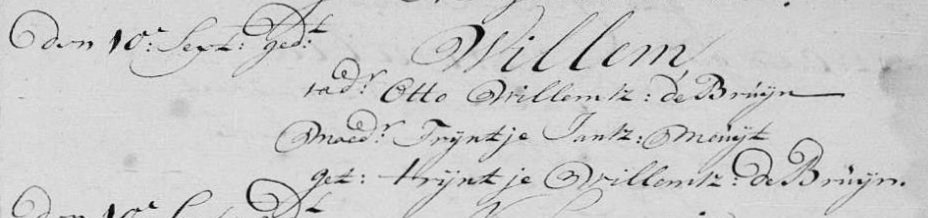 den 10e Sept: ged:t Willem
vadr Otto Willemtz: de Bruÿn
Moedr. Trÿntje Jantz: Meuÿt
get: trÿntje Willemtz: de Bruÿn.
den 10e